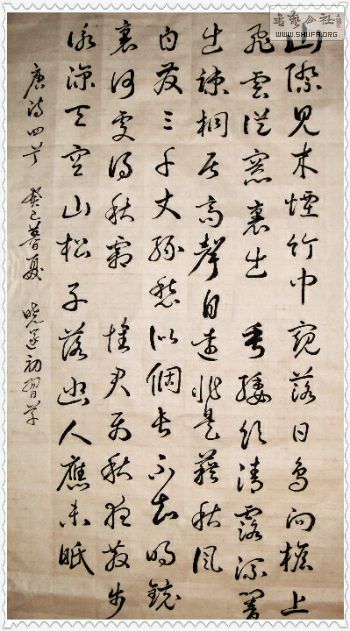 山際見来煙竹中窺落日鳥向檐上
飛雲從窗裏出 垂緌飲清露流響
出疏桐居高聲自遠非是藉秋風
白髮三千丈緣愁似個長不知明鏡
裏何處得秋霜 懷君屬秋夜散步
詠涼天空山松子落幽人應未眠
唐詩四首 癸巳暮夏 曉 初習草
书艺公社
WWW.SHUFA.ORG